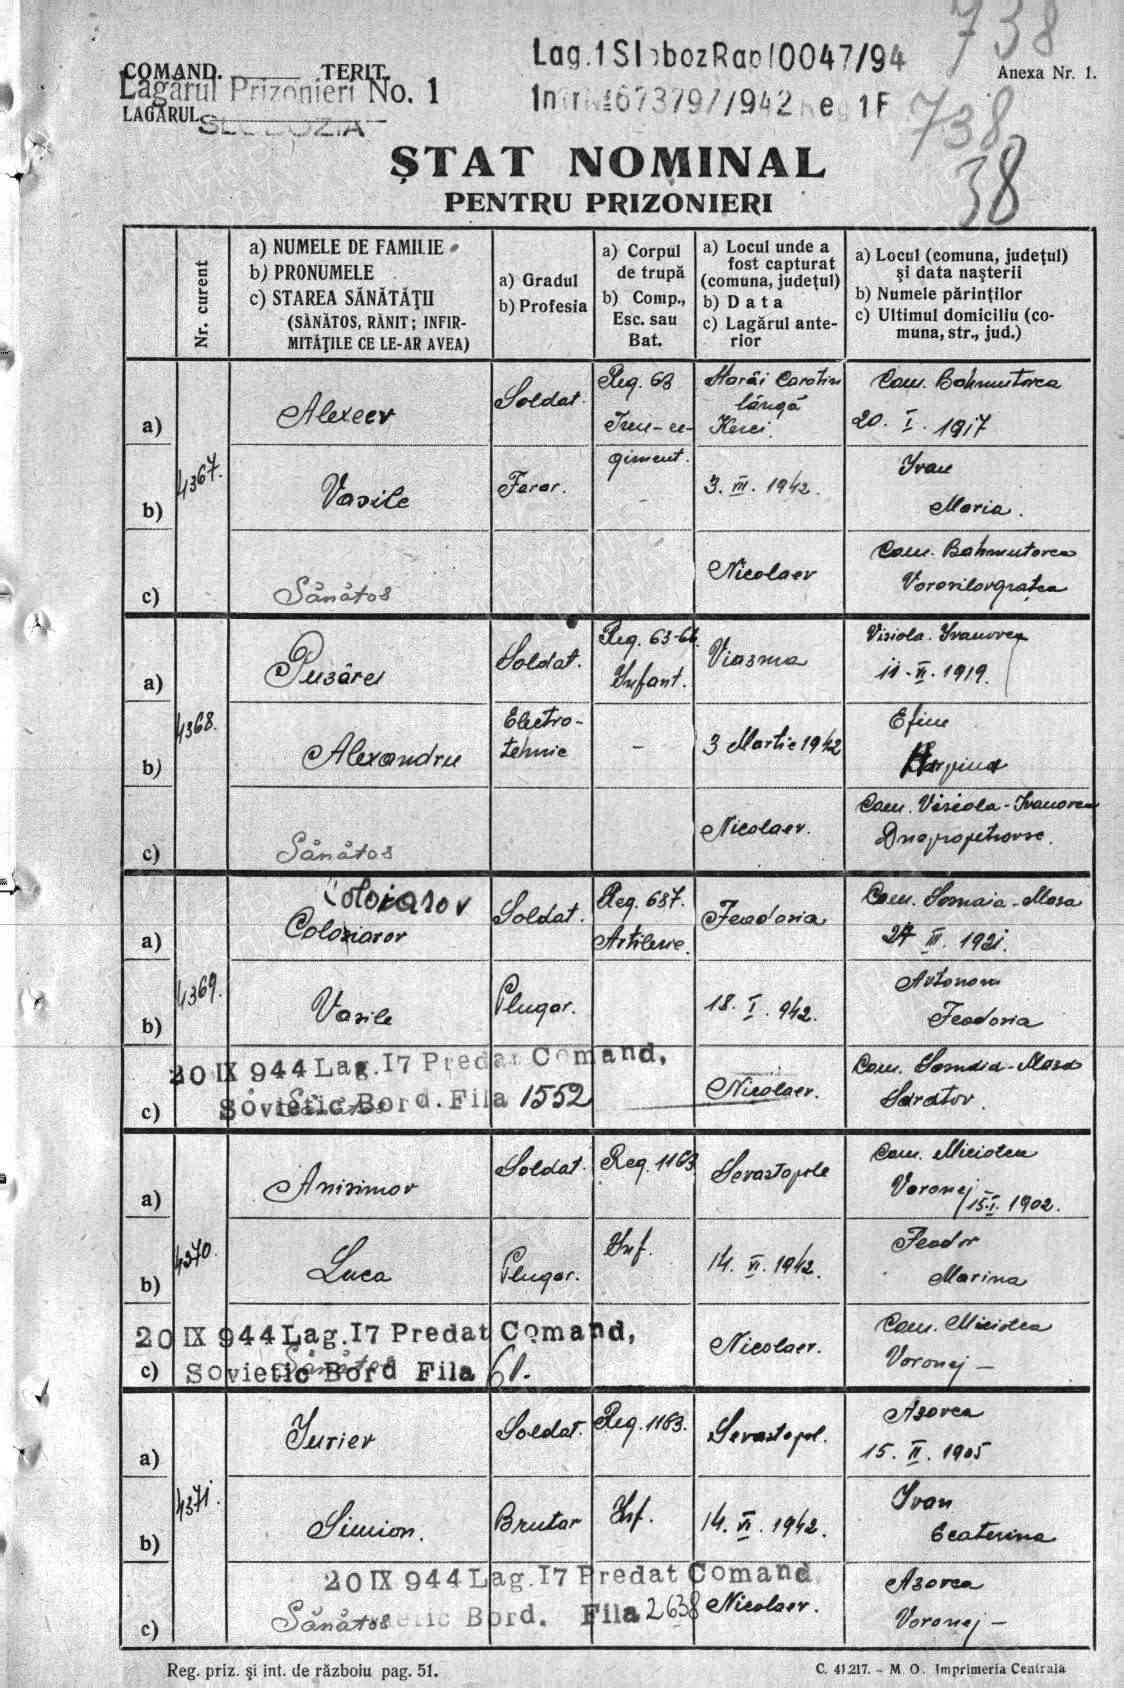 738
Lag. 1 Sloboz Rap 10047/94
COMAND. TERIT.
Anexa Nr. 1.
Lagarul Prizonieri No. 1
Intr № 673797/942 Reg 1F
LAGĂRUL
SLOBOZIA
738
38
ȘTAT NOMINAL
PENTRU PRIZONIERI
Nr. curent
a) NUMELE DE FAMILIE
b) PRONUMELE
c) STAREA SĂNĂTĂȚII
(SĂNĂTOS, RĂNIT; INFIR-
MITĂȚILE CE LE-AR AVEA)
a) Gradul
b) Profesia
a) Corpul
de trupă
b) Comp.,
Esc. sau
Bat.
a) Locul unde a
fost capturat
(comuna, județul)
b) Data
c) Lagărul ante-
rior
a) Locul (comuna, județul)
și data nașterii
b) Numele părinților
c) Ultimul domiciliu (co-
muna, str., jud.)
4367.
a)
Alexeev
Soldat.
Reg. 63
Tren-re-
giment.
lângă
Kerci.
Com. Bahmutovca
20. I. 1917
b)
Vasile
Ferar.
3. III. 1942.
Ivan
Maria.
c)
Sănătos
Nicolaev
Com. Bahmutovca
Vorosilovgratca
4368.
a)
Pusârei
Soldat.
Reg. 63-66.
Infant.
Viasma
Visiola-Ivanovca
11-II-1919.
b)
Alexandru
Electro-
tehnic
-
3 Martie 1942
Efim
c)
Sănătos
Nicolaev.
Com. Visiola-Ivanovca
Dnepropetrovsc.
4369.
a)
Coloiarov
Coloxiarov
Soldat.
Reg. 687.
Artilerie.
Feodosia
27 III. 1921.
b)
Vasile
Plugar.
18. I. 942.
Avtonom
Feodosia
c)
20 IX 944 Lag. 17 Predat Comand,
Sovietic Bord. Fila 1552
Sănătos
Nicolaev.
Saratov.
4370.
a)
Anisimov
Soldat.
Reg. 1163
Sevastopole
Voronej 15.I. 1902.
b)
Luca
Plugar.
Inf.
14. VI. 1942.
Feodor
Marina
c)
20 IX 944 Lag. 17 Predat Comand,
Sovietic Bord Fila 61.
Sănătos
Nicolaev.
Voronej -
4371.
a)
Iuriev
Soldat.
Reg. 1163.
Sevastopol.
Asovca
15. II. 1905
b)
Simion.
Brutar
Inf.
14. VI. 1942.
Ivan
Ecaterina
c)
20 IX 944 Lag. 17 Predat Comand
Sovietic Bord. Fila 2638
Sănătos
Nicolaev.
Asovca
Voronej -
Reg. priz. și int. de războiu pag. 51.
C. 41.217. - M. O. Imprimeria Centrala